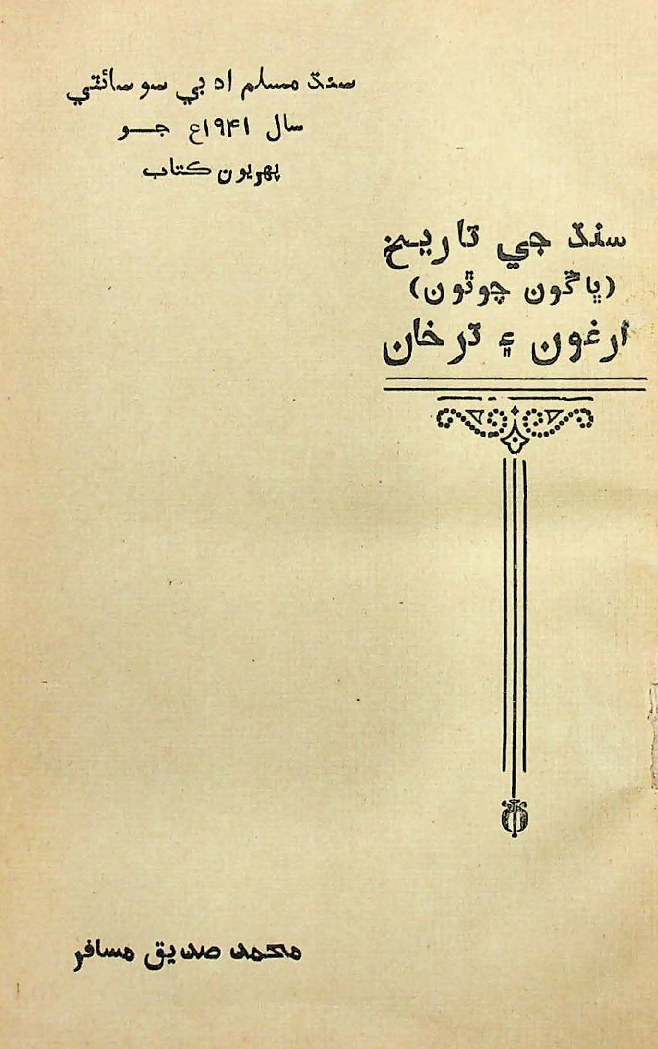 سنڌ مسلم ادبي سوسائٽي
سال ۱۹۴۱ع جو
پھريون ڪتاب
سنڌ جي تاريخ
(ڀاڱون چوٿون)
ارغون ۽ ترخان
محمد صديق مسافر